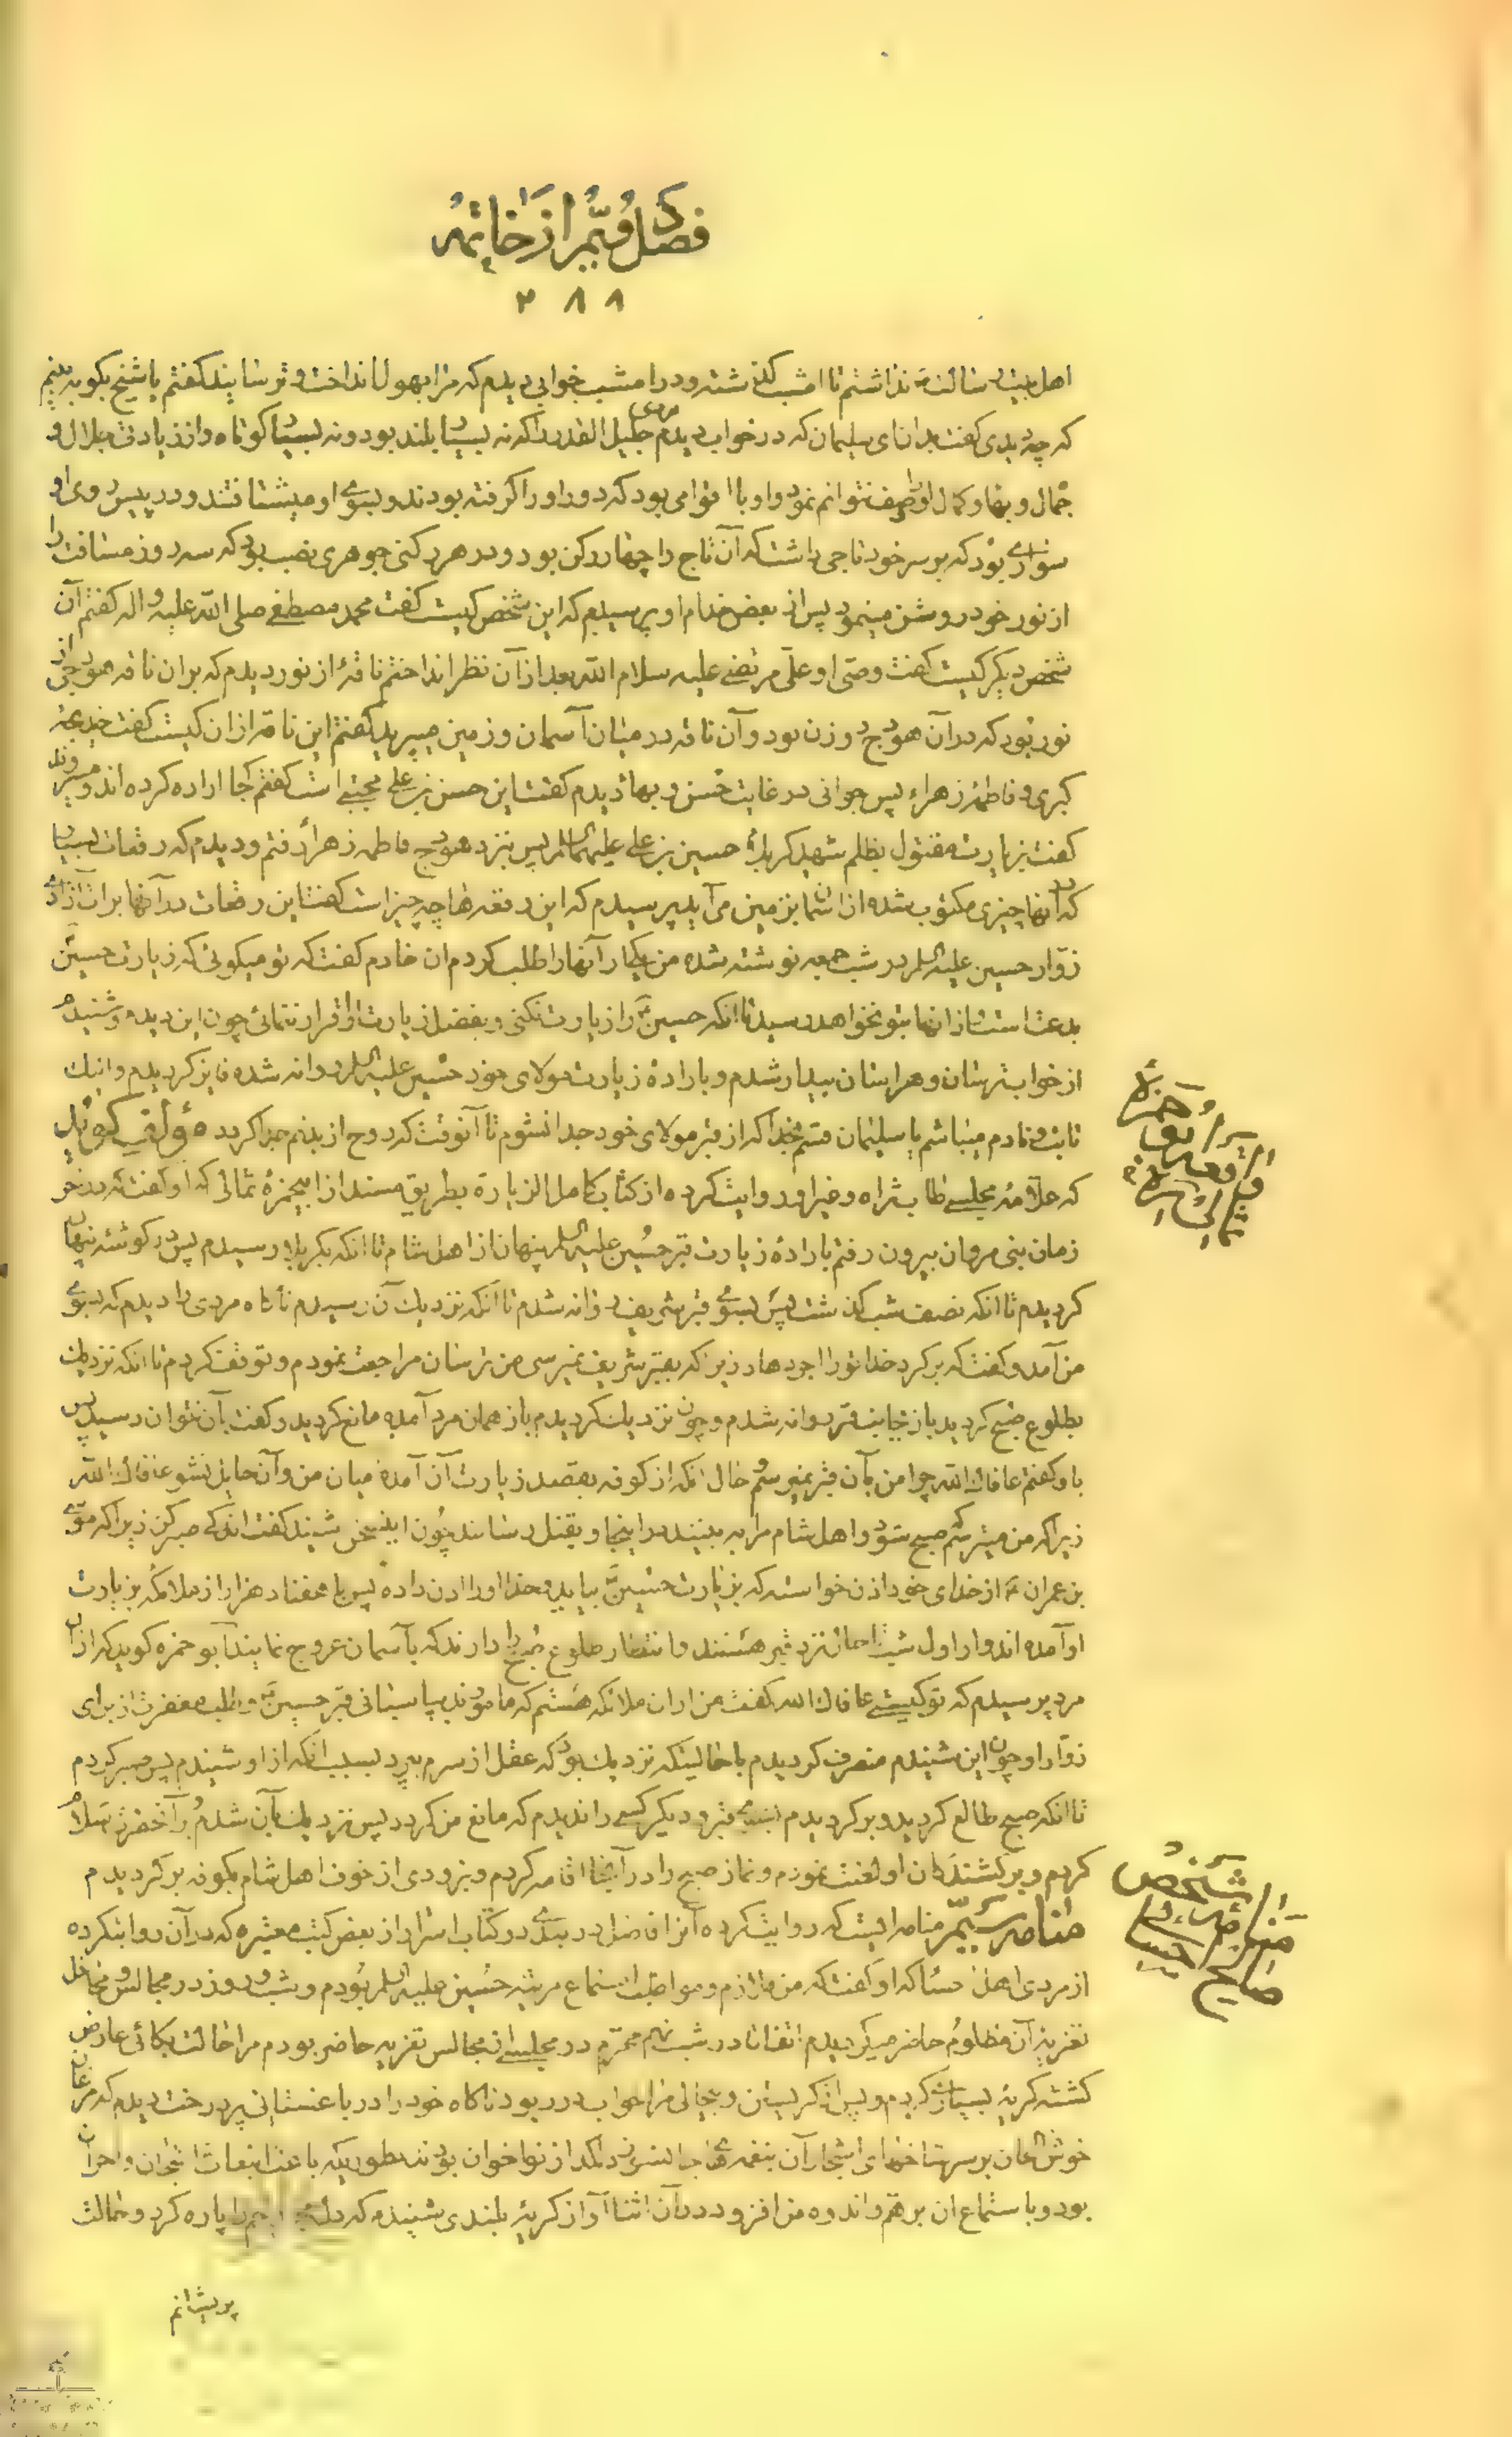 فصل دویّم از خاتمه
۲۸۸
اهل بیت رسالت نداشتم تا امشب گذشته و در امشب خوابی دیدم که مرا بهول انداخت و ترسانید گفتم یا شیخ بگو به بینم
که چه دیدی گفت بدان ای سلیمان که در خواب دیدم مردی جلیل القدر را که نه بسیار بلند بود و نه بسیار کوتاه و از زیادتی جلال و
جمال و بهاء و کمال او را وصف نتوانم نمود و او با اقوامی بود که دور او را گرفته بودند و بسوی او میشتافتند و در پیش روی او
سواری بود که بر سر خود تاجی داشت که آن تاج را چهار رکن بود و در هر رکنی جوهری نصب بود که سه روز مسافت را
از نور خود روشن مینمود پس از بعض خدام او پرسیدم که این شخص کیست گفت محمد مصطفی صلی الله علیه و اله گفتم آن
شخص دیگر کیست گفت وصی او علی مرتضی علیه سلام الله بعد از آن نظر انداختم ناقهٔ از نور دیدم که بر ان ناقه هودجی از
نور بود که در آن هودج دو زن بود و آن ناقه در میان آسمان و زمین میپرید گفتم این ناقه از ان کیست گفت خدیجهٔ
کبری و فاطمهٔ زهراء پس جوانی در غایت حسن و بهاء دیدم گفت این حسن بن علی مجتبی است گفتم کجا اراده کرده اند و میروند
گفت بزیارت مقتول بظلم شهید کربلاء حسین بن علی علیهما السلام پس بنزد هودج فاطمه زهراء رفتم و دیدم که رقعات بسیار
که در آنها چیزی مکتوب شده از آسمان بزمین می آید پرسیدم که این رقعه ها چه چیز است گفت این رقعات در آنها برات آزادی
زوّار حسین علیه السلام در شب جمعه نوشته شده من یکبار آنها را طلب کردم ان خادم گفت که تو میگوئی که زیارت حسین
بدعت است از انها بتو نخواهد رسید تا انکه حسین را زیارت نکنی و بفضل زیارت او اقرار ننمائی چون این دیدم و شنیدم
از خواب ترسان و هراسان بیدار شدم و باراده زیارت مولای خود حسین علیه السلام روانه شده فایز گردیدم و اینک
تائب و نادم میباشم یا سلیمان قسم بخدا که از قبر مولای خود جدا نشوم تا آنوقت که روح از بدنم جدا گردد مؤلف گوید
که علّامهٔ مجلسی طاب ثراه و غیر او روایت کرده از کتاب کامل الزیارة بطریق مسند از ابیحمزهٔ ثمالی که او گفت که در اخر
زمان بنی مروان بیرون رفتم باراده زیارت قبر حسین علیه السلام پنهان از اهل شام تا انکه بکربلا رسیدم پس در گوشه پنهان
گردیدم تا انکه نصف شب گذشت پس بسوی قبر شریف روانه شدم تا آنکه نزدیک آن رسیدم ناگاه مردی را دیدم که بسوی
من آمد و گفت که برگرد خدا تو را اجر دهاد زیرا که بقبر شریف نمیرسی من ترسان مراجعت نمودم و توقف کردم تا انکه نزدیک
بطلوع صبح گردید باز بجانب قبر روانه شدم و چون نزدیک گردیدم باز همان مرد آمده مانع گردید و گفت بآن نتوان رسید پس
باو گفتم عافاک الله چرا من بآن قبر نمیرسم و حال آنکه از کوفه بقصد زیارت آن آمده میان من و آن حایل نشو عافاک الله
زیرا که من میترسم که صبح شود و اهل شام مرا به بینند در اینجا و بقتل رسانند چون این سخن شنید گفت اندکی صبر کن زیرا که موسی
بن عمران از خدای خود اذن خواسته که بزیارت حسین بیاید و خدا او را اذن داده پس با هفتاد هزار از ملائکه بزیارت
او آمده اند و از اول شب تا حال نزد قبر هستند و انتظار طلوع صبح را دارند که بآسمان عروج نمایند ابو حمزه گوید که از ان
مرد پرسیدم که تو کیستی عافاک الله گفت من از ان ملائکه هستم که مامورند بپاسبانی قبر حسین و طلب مغفرت از برای
زوّار او چون این شنیدم منصرف گردیدم با حالتیکه نزدیک بود که عقل از سرم بپرد بسبب انکه از او شنیدم پس صبر کردم
تا انکه صبح طالع گردید و برگردیدم بسوی قبر و دیگر کسی را ندیدم که مانع من گردد پس نزدیک بآن شدم و بر آنحضرت سلام
کردم و بر کشندگان او لعنت نمودم و نماز صبح را در آنجا اقامه کردم و بزودی از خوف اهل شام بکوفه برگردیدم
منام سیّم منامیست که روایت کرده آنرا فاضل دربندی در کتاب اسرار از بعض کتب معتبره که در آن روایت کرده
از مردی اهل حسا که او گفت که من ملازم و مواظب استماع مرثیه حسین علیه السلام بودم و شب و روز در مجالس و محافل
تعزیه آن مظلوم حاضر میگردیدم اتفاقا در شب نهم محرّم در مجلسی از مجالس تعزیه حاضر بودم مرا حالت بکائی عارض
گشته گریهٔ بسیار کردم و پس از گریستن و بیحالی مرا خواب در ربود ناگاه خود را در باغستانی پر درخت دیدم که مرغان
خوش الحان بر سر شاخهای اشجار آن بنغمه های جانسوز و دلگداز نواخوان بودند بطوریکه باعث انبعاث اشجان و احزان
بود و باستماع ان بر همّ و اندوه من افزود در آن اثنا آواز گریهٔ بلندی شنیدم که دل را پاره کرد و حالت
پریشانم
واقعه ابو حمزه ثمالی
منام شخص صالح احسائی